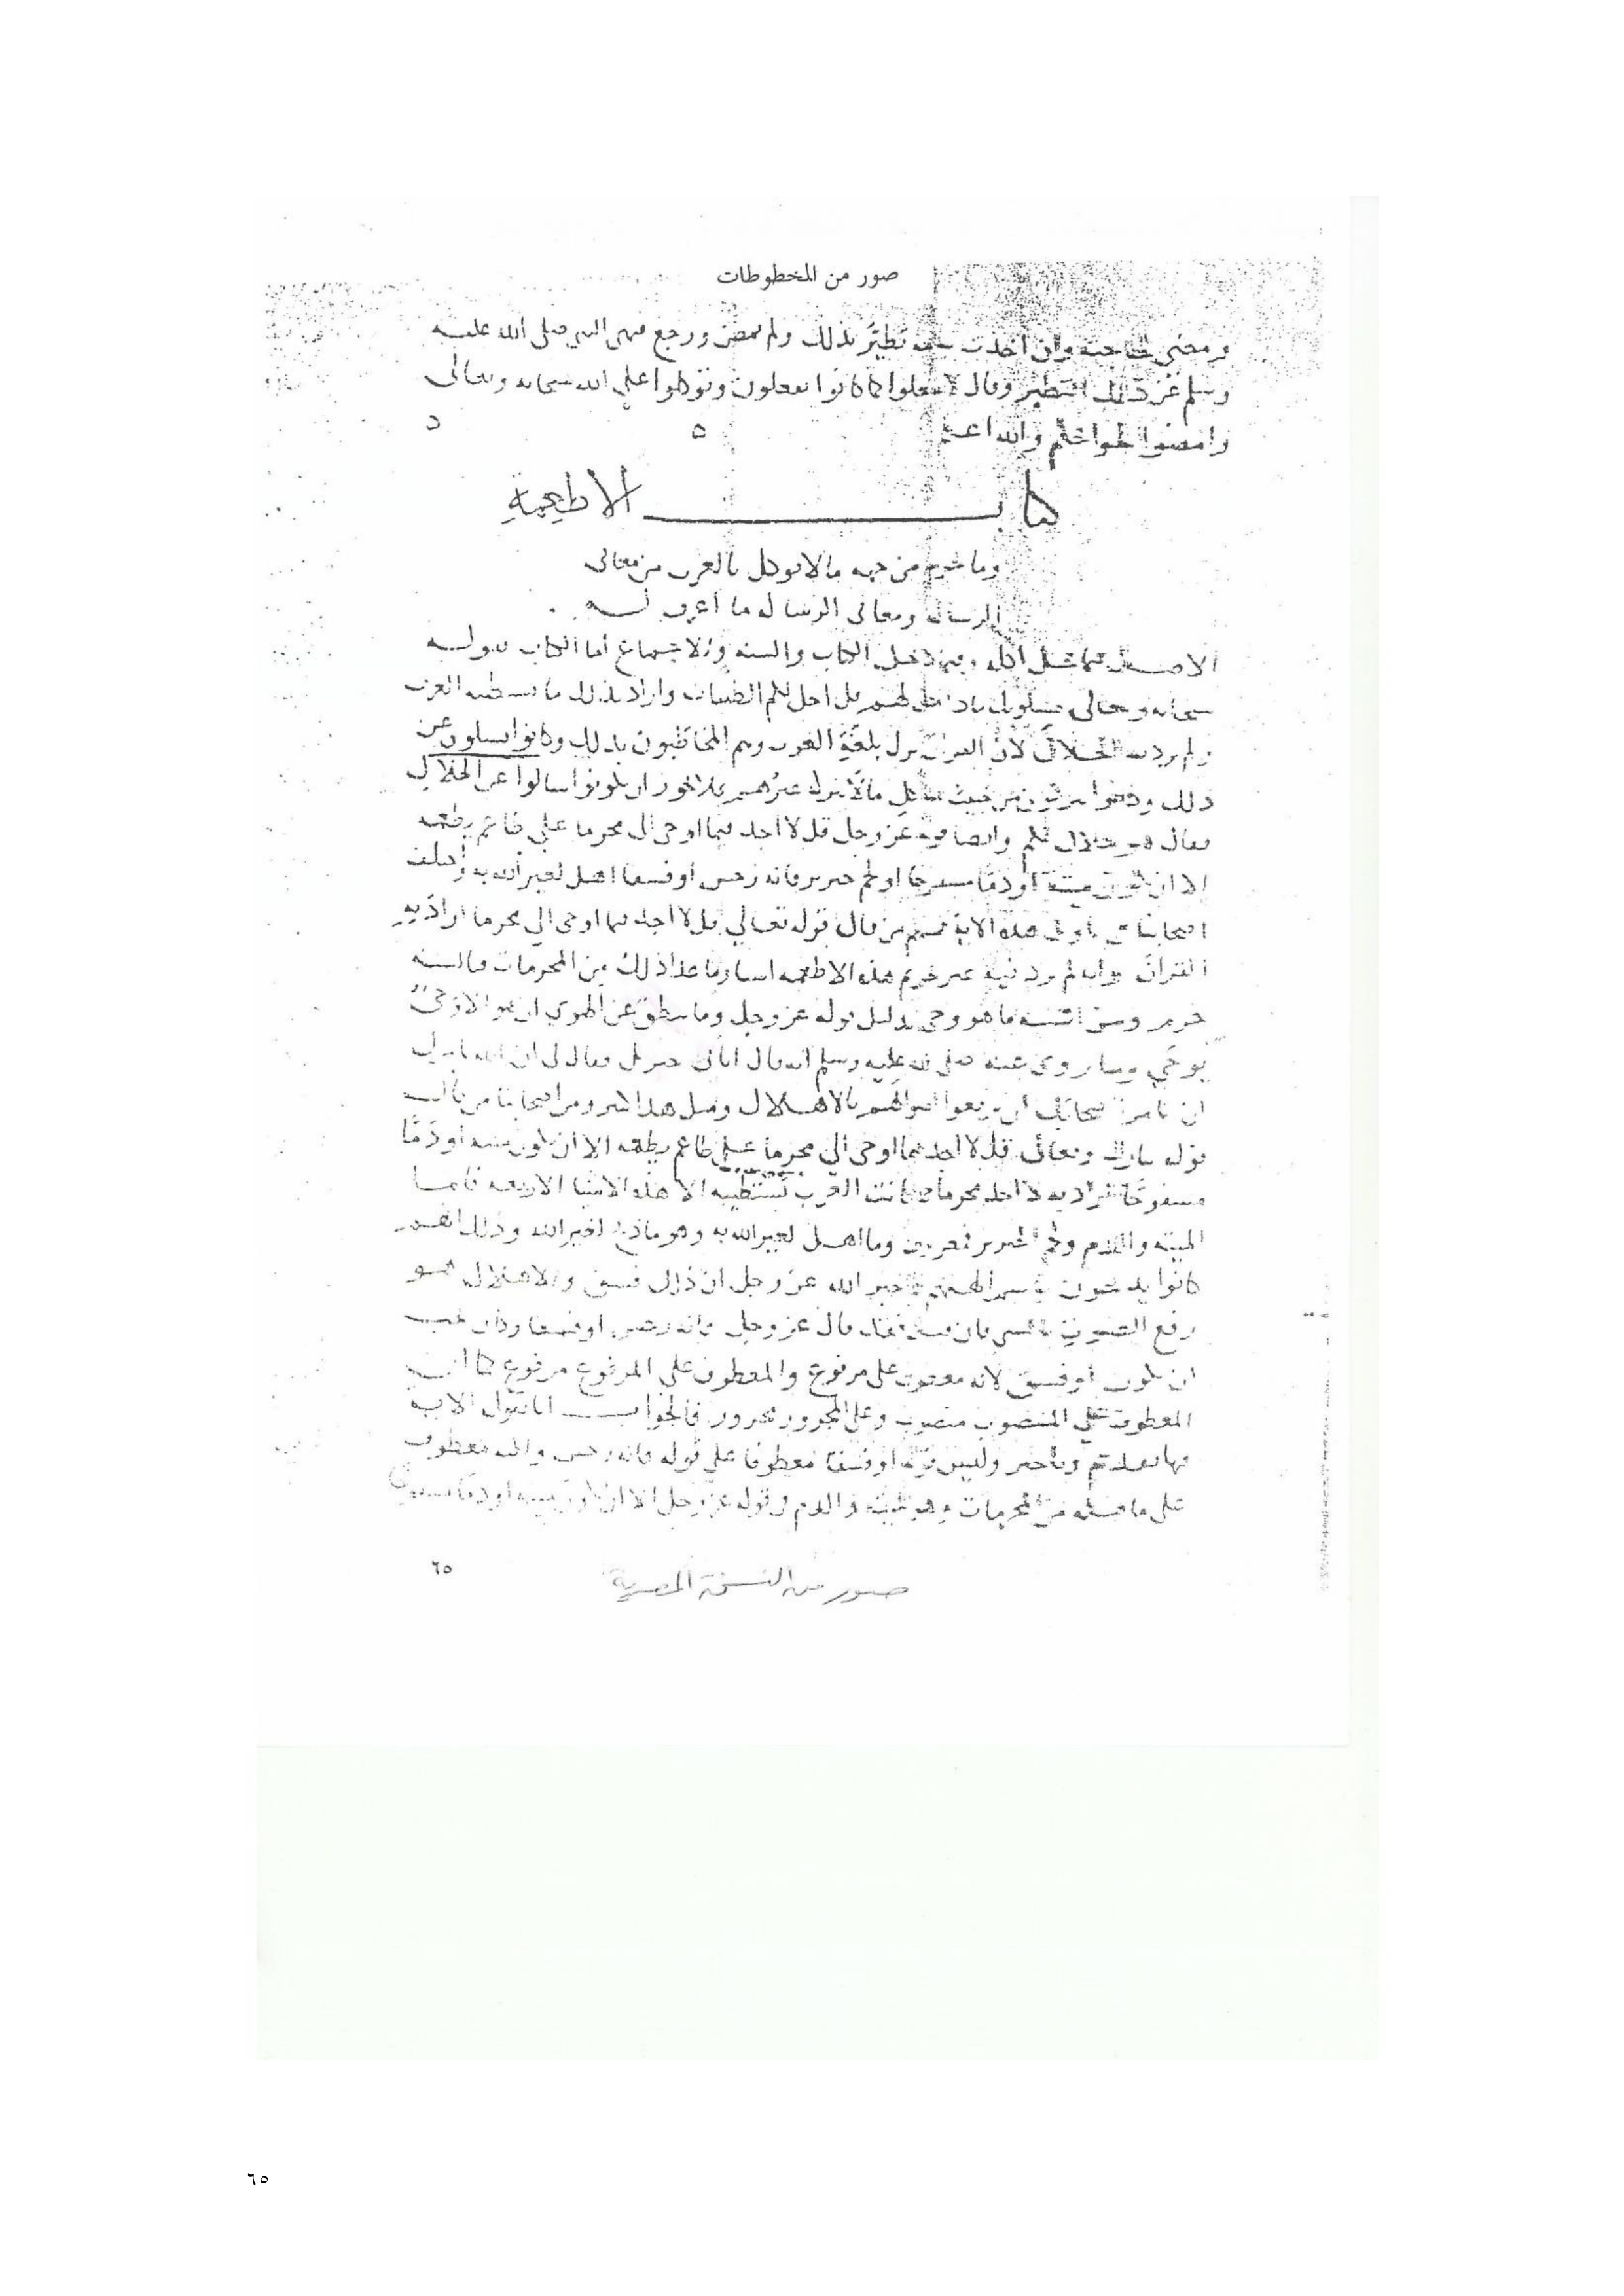 صور من المخطوطات
ومضى لحاجته وان أخذت تطيّر بذلك ولم يمض ورجع فنهى النبي صلى الله عليه
وسلم عن ذلك التطير وقال لا تفعلوا كما كانوا يفعلون وتوكلوا على الله سبحانه وتعالى
وامضوا لحوائجكم والله اعلم
كتاب الاطعمة
وما من جهة ما لا توكل بالعرب من معاني
الرسالة ومعاني الرسالة ما أعرف له
الاصل فيما يحل أكله وفيما يحل الكتاب والسنه والاجماع أما الكتاب فقوله
سبحانه وتعالى يسلونك ماذا احل لهم قل احل لكم الطيبات واراد بذلك ما تستطيبه العرب
ولم يرد الحلال لأن القران نزل بلغة العرب وهم المخاطبون بذلك وكانوا يسلون عن
ذلك ما لا يجوز ان يكونوا سالوا عن الحلال
فقال هو حلال لكم وايضا قوله عز وجل قل لا أجد فيما اوحى الى محرما على طاعم يطعمه
الا ان يكون ميتة أو دمًا مسفوحا او لحم خنزير فانه رجس أو فسقا اهل لغير الله به واختلف
اصحابنا في تاويل هذه الاية فمنهم من قال قوله تعالي قل لا أجد فيما اوحى الي محرما اراد به
القران وانه لم يرد فيه غير تحريم هذه الاطعمه فاما ما عدا ذلك من المحرمات فالسنه
ومن السنه ما هو وحي بدليل قوله عز وجل وما ينطق عن الهوى ان هو الا وحيٌ
يوحى وما روي عنه صلى الله عليه وسلم انه قال اتاني جبريل فقال لي ان الله
ان تامر اصحابك أن يرفعوا اصواتهم بالاهلال ومثل هذا ومن اصحابنا من قال
قوله تبارك وتعالى قل لا أجد فيما اوحى الي محرما على طاعم يطعمه الا أن يكون ميته أو دمًا
مسفوحًا اراد به لا اجد محرما مما كانت العرب تستطيبه الا هذه الاشيا الاربعه
الميته والدم ولحم الخنزير وما اهل لغير الله به وهو ما ذبح لغير الله وذلك انهم
كانوا يذبحون باسم الهتهم فاخبر الله عز وجل ان ذلك فسق والاهلال هو
رفع الصوت فان قيل فقد قال عز وجل فانه رجس او فسقا وكان يجب
ان يكون أو فسق لانه معطوف على مرفوع والمعطوف على المرفوع مرفوع كما أن
المعطوف على المنصوب منصوب وعلى المجرور مجرور فالجواب انا نقول الاية
فيها تقديم وتاخير وليس قوله أو فسقا معطوفا على قوله فانه رجس وانه معطوف
على ما قبله من المحرمات وهو الميته والدم وقوله عز وجل الا ان يكون ميته أو دمًا مسفوحا
٦٥
صور من النسخة المصرية
٦٥